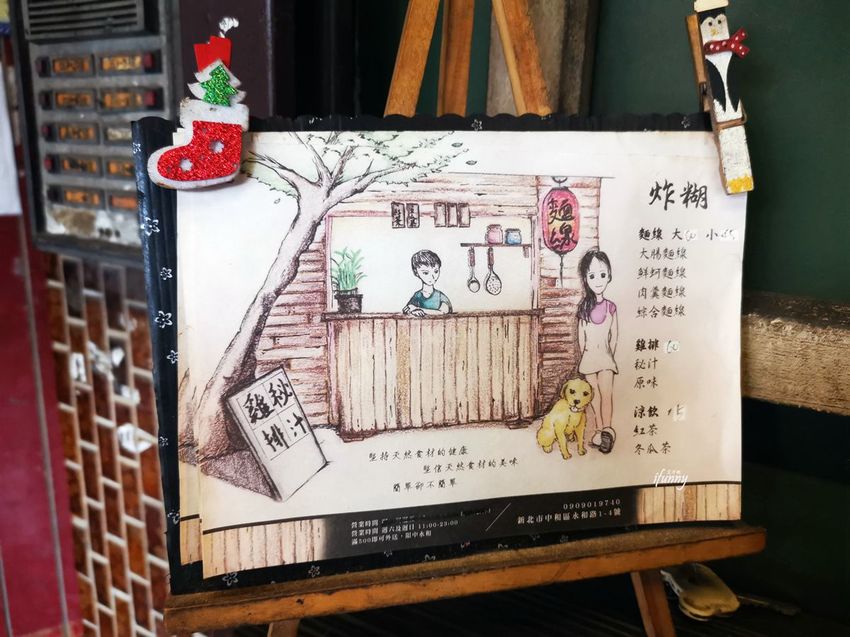 炸糊
麵線 大60 小45
大腸麵線
鮮蚵麵線
肉羹麵線
綜合麵線
雞排 60
秘汁
原味
涼飲 15
紅茶
冬瓜茶
麵線
秘汁
雞排
堅持天然食材的健康
堅信天然食材的美味
簡單卻不簡單
ifunny
營業時間
營業時間 週六及週日 11:00-23:00
滿500即可外送,限中永和
0909019740
新北市中和區永和路1-4號